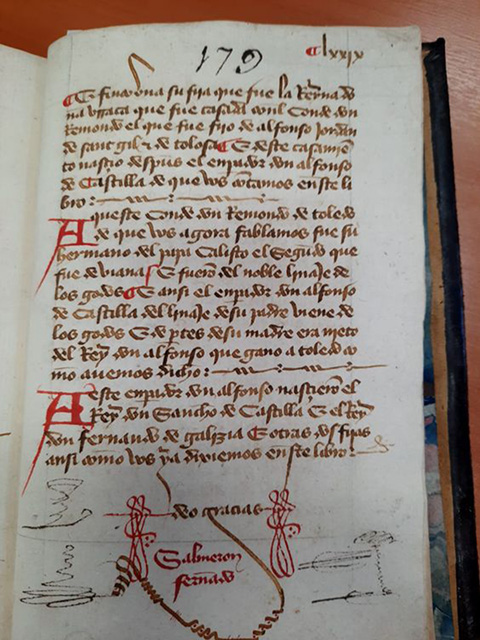 179
clxxix
E finco vna su fija que fue la Reyna do
na vrraca que fue casada con el Conde don
Remondo el que fue fijo de alfonso Jordan
de sant gil & de tolosa E de este casamien
to nascio despues el enperador don alfonso
de Castilla de que vos contamos en este li
bro
Aqueste Conde don Remondo de toledo
de que vos agora fablamos fue su
hermano del papa Calisto el Segundo que
fue de viana E fueron del noble linaje de
los godos E ansi el enperador don alfonso
de Castilla del linaje de su padre viene de
los godos E de partes de su madre era nieto
del Rey don alfonso que gano a toledo co
mo auemos dicho
A este enperador don alfonso nascieron el
Rey don Sancho de Castilla E el Rey
don fernando de galizia E otras dos fijas
ansi como vos ya diximos en este libro
deo gracias
Salmeron
fernando